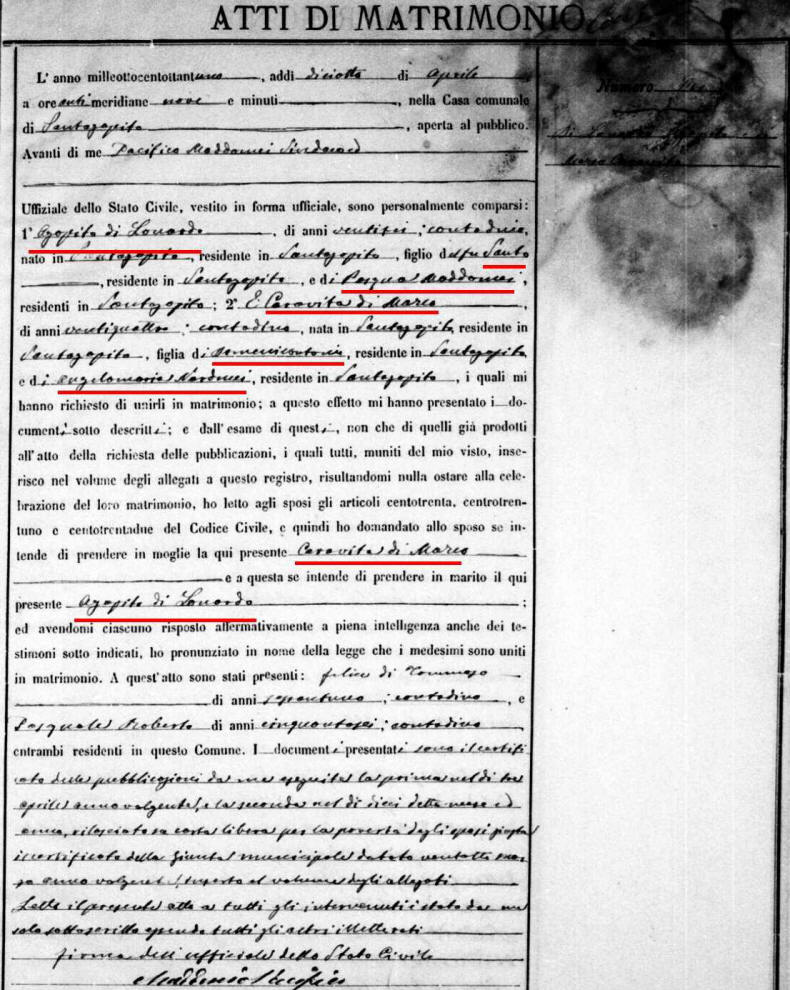 ATTI DI MATRIMONIO
L' anno milleottocentottantuno, addi diciotto di Aprile
a ore antimeridiane nove e minuti, nella Casa comunale
di Santagapito, aperta al pubblico.
Avanti di me Pacifico Maddomei Sindaco
Numero
di Lonardo Agapito e
Marco Caravita
Uffiziale dello Stato Civile, vestito in forma ufficiale, sono personalmente comparsi:
1° Agapito di Lonardo, di anni ventisei; contadino,
nato in Santagapito, residente in Santagapito, figlio del fu Santo
, residente in Santagapito, e di Pasqua Maddomei,
residenti in Santagapito; 2° E Caravita di Marco,
di anni ventiquattro; contadina, nata in Santagapito, residente in
Santagapito, figlia di Domenicantonio, residente in Santagapito
e di Angelamaria Narducci, residente in Santagapito, i quali mi
hanno richiesto di unirli in matrimonio; a questo effetto mi hanno presentato i do-
cumenti sotto descritti; e dall' esame di questi, non che di quelli già prodotti
all' atto della richiesta delle pubblicazioni, i quali tutti, muniti del mio visto, inse-
risco nel volume degli allegati a questo registro, risultandomi nulla ostare alla cele-
brazione del loro matrimonio, ho letto agli sposi gli articoli centotrenta, centrotren-
tuno e centotrentadue del Codice Civile, e quindi ho domandato allo sposo se in-
tende di prendere in moglie la qui presente Caravita di Marco
e a questa se intende di prendere in marito il qui
presente Agapito di Lonardo;
ed avendomi ciascuno risposto affermativamente a piena intelligenza anche dei te-
stimoni sotto indicati, ho pronunziato in nome della legge che i medesimi sono uniti
in matrimonio. A quest' atto sono stati presenti: felice di Tommaso
di anni; contadino, e
Pasquale Roberto di anni cinquantasei; contadino
entrambi residenti in questo Comune. I documenti presentati sono il certifi
cato delle pubblicazioni da me eseguita la prima nel di tre
aprile anno volgente, e la seconda nel di dieci detto mese ed
anno, rilasciato in carta libera per la povertà degli sposi giusta
il certificato della Giunta municipale datato ventotto mar
zo anno volgente, inserto al volume degli allegati
Letto il presente atto a tutti gli intervenuti è stato da me
solo sottoscritto essendo tutti gli altri illetterati
firma dell' ufficiale dello Stato Civile